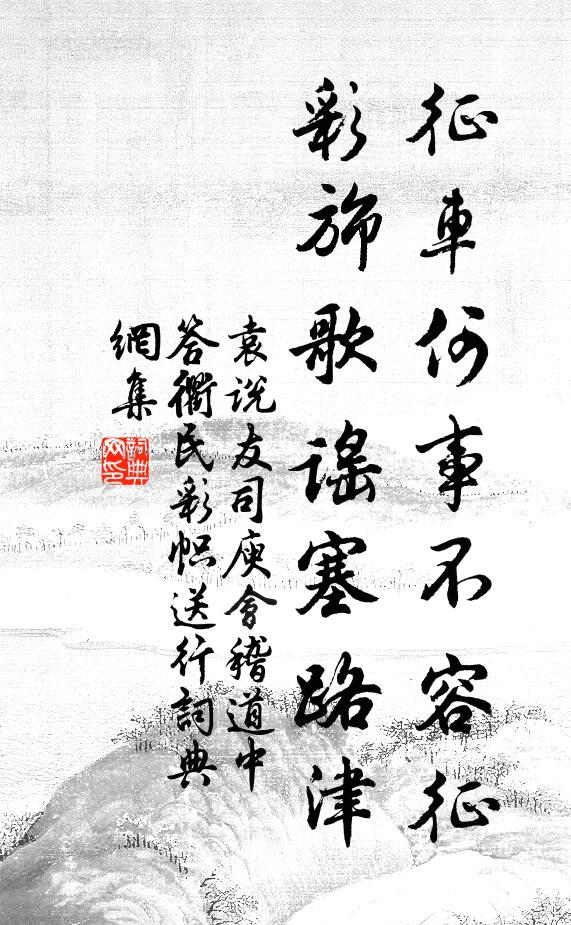 征車何事不容征
彩旆歌謠塞路津
袁説友司庾會稽道中
答衢民彩幟送行詞典
網集